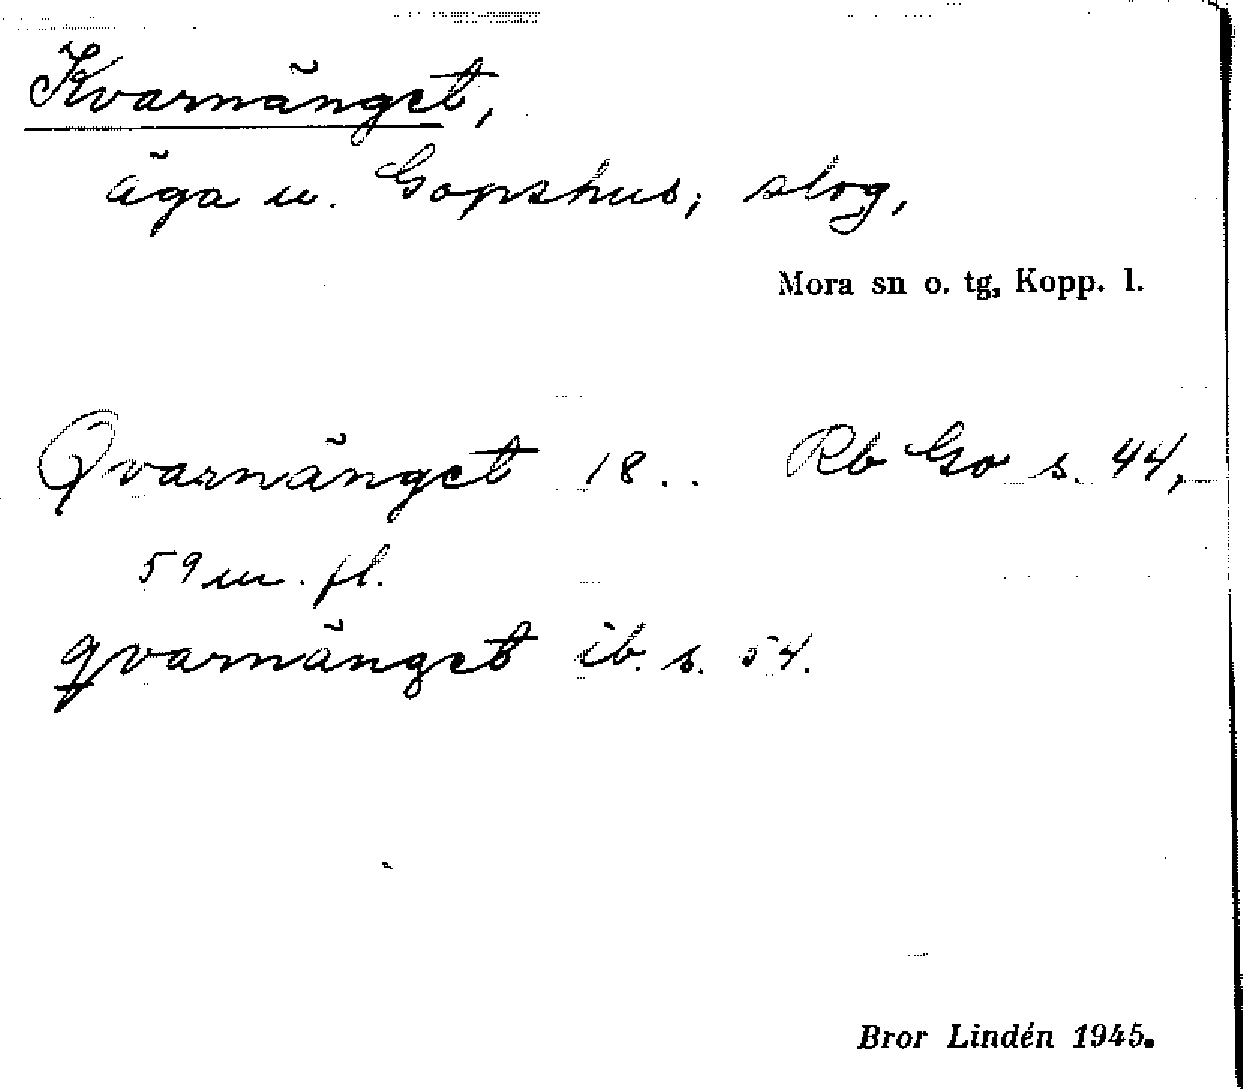 Kvarnänget,
äga u. Gopshus; slog,
Mora sn o. tg, Kopp. l.
Qvarnänget 18.. Rb Go s. 44,
59 m. fl.
qvarnänget ib. s. 54.
Bror Lindén 1945.